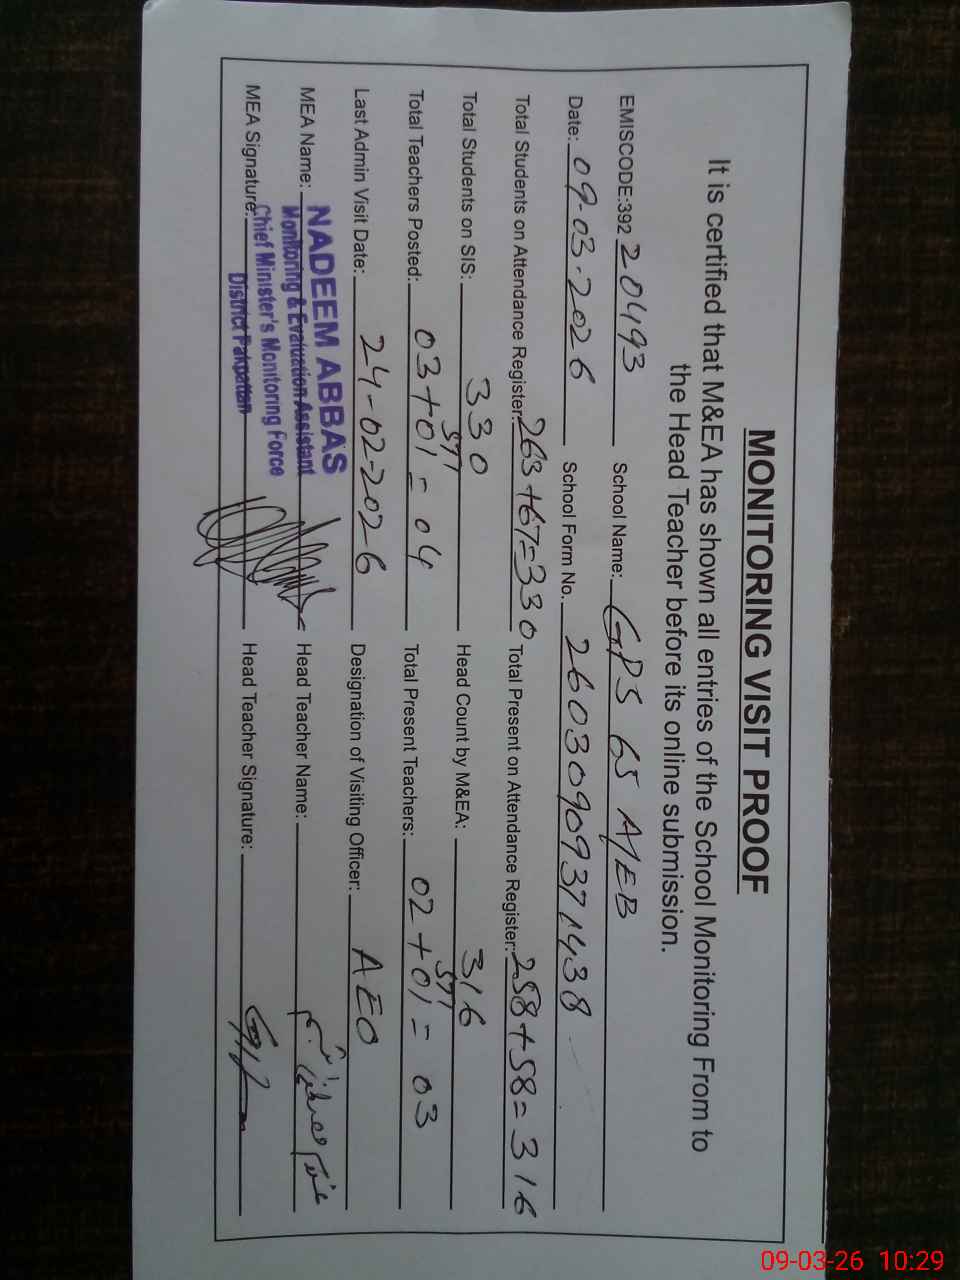 MONITORING VISIT PROOF
It is certified that M&EA has shown all entries of the School Monitoring From to
the Head Teacher before its online submission.
EMISCODE:392 20493 School Name: GPS 65 A/EB
Date: 09-03-2026 School Form No. 26030909371438
Total Students on Attendance Register: 263+67=330 Total Present on Attendance Register: 258+58=316
Total Students on SIS: 330 Head Count by M&EA: 316
Total Teachers Posted: 03+01=04 Total Present Teachers: 02+01=03
Last Admin Visit Date: 24-02-2026 Designation of Visiting Officer: AEO
MEA Name: NADEEM ABBAS Head Teacher Name:
Monitoring & Evaluation Assistant
MEA Signature: Chief Minister's Monitoring Force Head Teacher Signature:
District Pakpattan
09-03-26 10:29